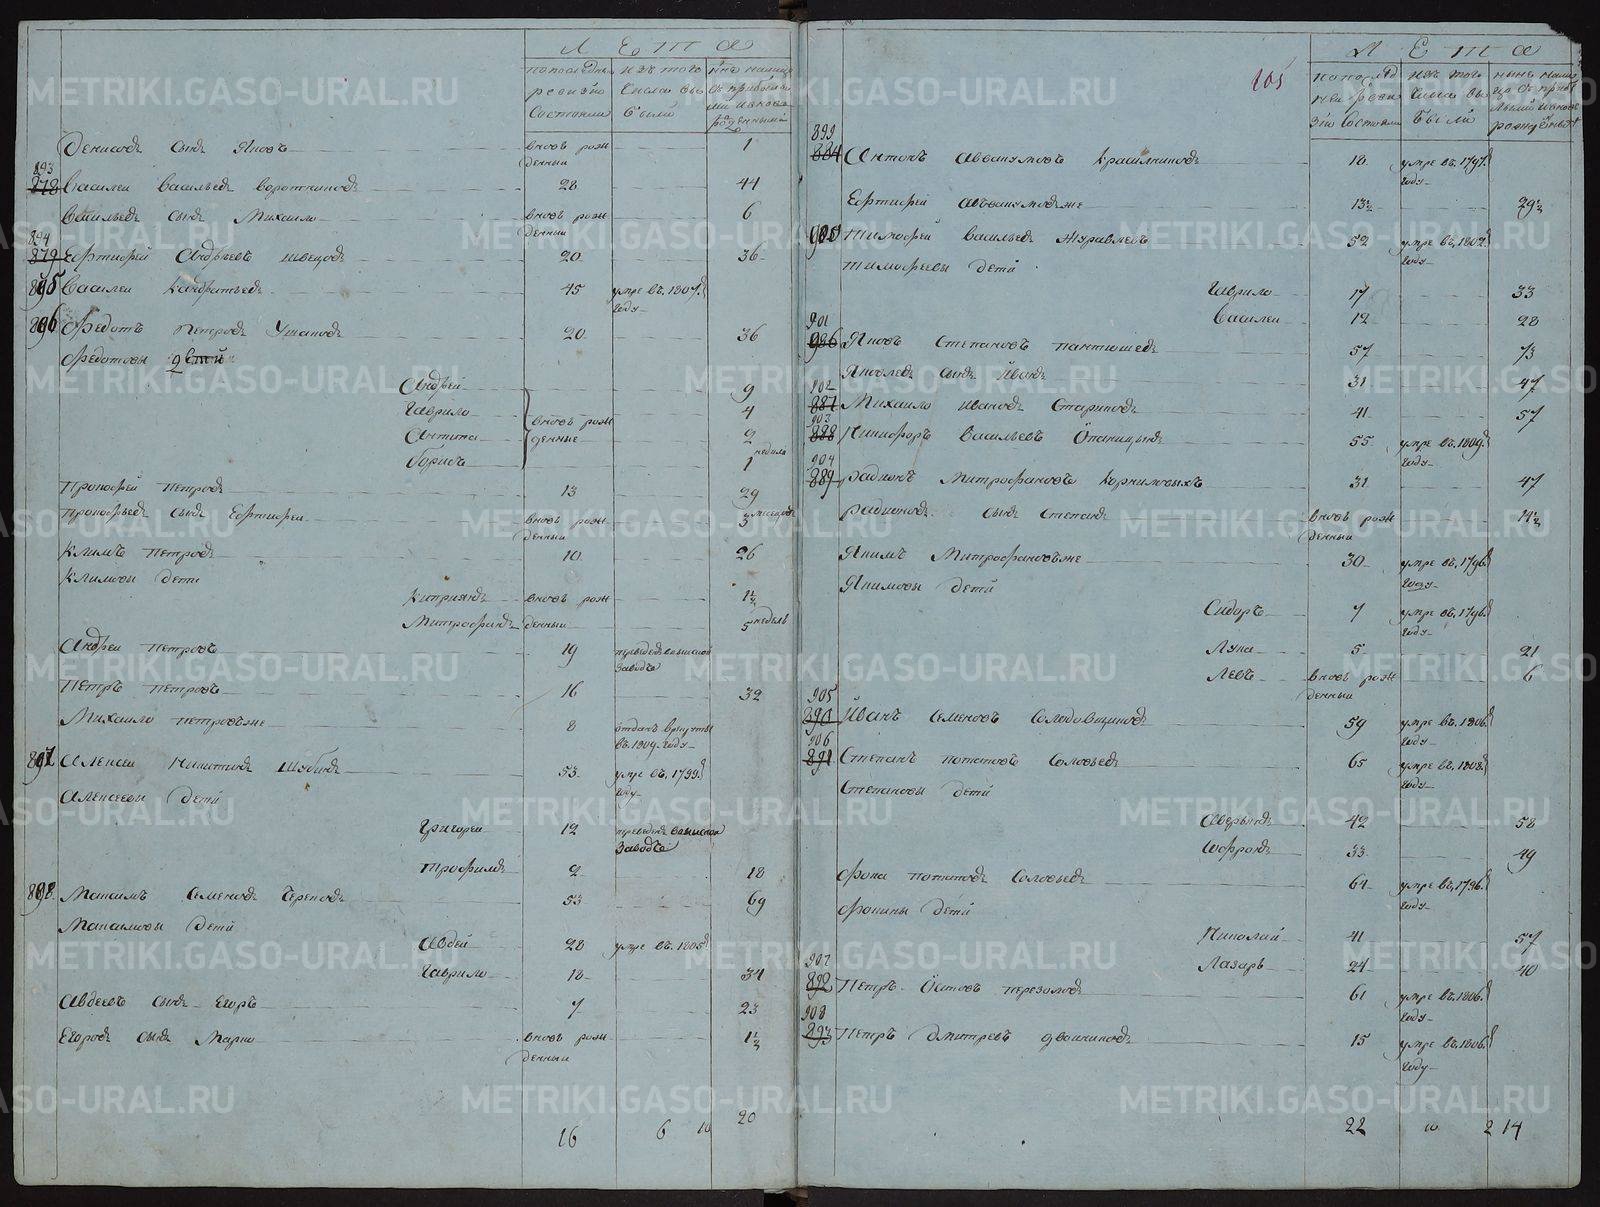 Лета
по последней ревизии состояли
из того числа выбыли
ныне налицо с прибылыми и вновь рожденными
Денисовъ сынъ Яковъ вновь рожденный 1
893 878 Василеи Васильевъ Воротниковъ 28 44
Васильевъ сынъ Михаило вновь рожденный 6
894 879 Ефтифей Андреевъ Швецовъ 20 36
895 Василеи Кандратьевъ 45 умре въ 1807 году
896 Федотъ Петровъ Ушаковъ 20 36
Федотовы дети
Андрей 9
Гаврило вновь рожденные 4
Антипа 2
Борисъ 1 неделя
Прокофей Петровъ 13 29
Прокофьевъ сынъ Ефтифеи вновь рожденный 3 месецовъ
Климъ Петровъ 10 26
Климовы дети
Киприянъ вновь рожденный 1½
Митрофанъ 5 недель
Андреи Петровъ 19 переведенъ заводъ
Петръ Петровъ 16 32
Михаило Петровъ же 8 отданъ в рекруты въ 1809 году
897 Алексеи Никитинъ Шубинъ 53 умре въ 1799 году
Алексеевы дети
Григореи 12 переведенъ заводъ
Трофимъ 2 18
898 Максимъ Семеновъ Череповъ 53 69
Максимовы дети
Авдей 28 умре въ 1805
Гаврило 18 34
Авдеевъ сынъ Егоръ 7 23
Егоровъ сынъ Марко вновь рожденный 1½
16 6 10 20
105
Лета
по последней ревизии состояли
из того числа выбыли
ныне налицо с прибылыми и вновь рожденными
899 884 Антонъ Аввакумовъ Крашениниковъ 18 умре въ 1797 году
Ефтифей Авъвакумовъ же 13½ 29½
900 Тимофей Васильевъ Журавлевъ 52 умре въ 1802 году
Тимофеевы дети
Гаврило 17 33
Василеи 12 28
901 886 Яковъ Степановъ Пантюшевъ 57 73
Яковлевъ сынъ Иванъ 31 47
902 887 Михаило Ивановъ Стариковъ 41 57
903 888 Никифоръ Васильевъ 55 умре въ 1809 году
904 889 Радионъ Митрофановъ Корниловыхъ 31 47
Радионовъ сынъ Степанъ вновь рожденный 14½
Якимъ Митрофановъ же 30 умре въ 1796 году
Якимовы дети
Сидоръ 7 умре въ 1796 году
Лука 5 21
Левъ вновь рожденный 6
905 890 Иванъ Семеновъ Солодовщиковъ 59 умре въ 1806 году
906 891 Степанъ Потаповъ Соловьевъ 65 умре въ 1808 году
Степановы дети
Аверьянъ 42 58
Софронъ 33 49
Фока Потаповъ Соловьевъ 61 умре въ 1796 году
Фокины дети
Николай 41 57
Лазарь 24 40
907 892 Петръ Перезоловъ 61 умре въ 1806 году
908 893 Петръ Дмитревъ Двойниковъ 15 умре въ 1806 году
22 10 2 14
METRIKI.GASO-URAL.RU